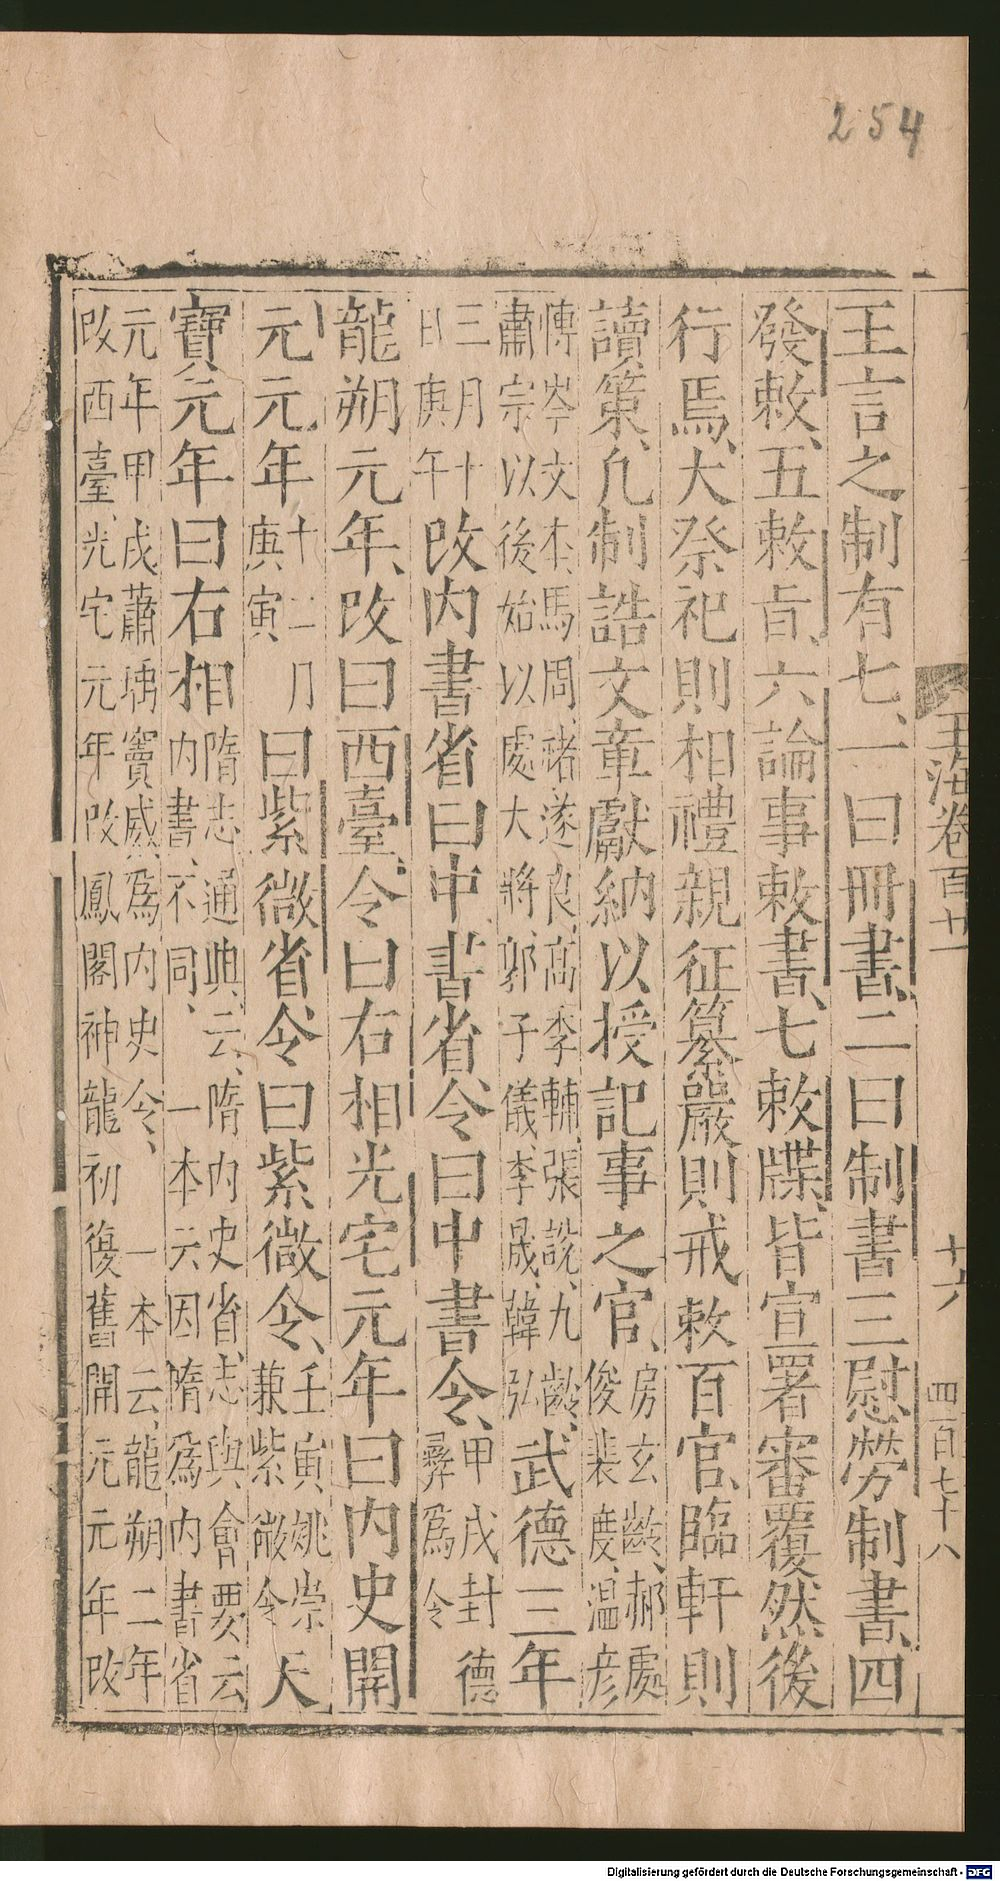 254
玉海卷百廿一
十六
四百七十八
王言之制有七、一曰冊書、二曰制書三慰勞制書、四
發敕、五敕旨、六論事敕書、七敕牒、皆宣署審覆然後
行焉、大祭祀則相禮親征纂嚴則戒敕百官、臨軒則
讀策、凡制誥文章獻納以授記事之官、房玄齡、郝處
俊裴度、溫彦
傅岑文本、馬周、褚遂良、高李輔、張說、九齡、
肅宗以後始以處大將、郭子儀、李晟、韓弘武德三年
三月十
日庚午改內書省曰中書省、令曰中書令、甲戌封德
彝爲令
龍朔元年、改曰西臺、令曰右相光宅元年曰內史開
元元年十二月
庚寅曰紫微省、令曰紫微令、壬寅姚崇
兼紫微令天
寶元年曰右相隋志通典、云、隋內史省、志與會要云
內書、不同、一本云因隋爲內書省
元年甲戌蕭瑀竇威爲內史令、一本云、龍朔二年
改西臺、光宅元年改鳳閣神龍初復舊開元元年改
Digitalisierung gefördert durch die Deutsche Forschungsgemeinschaft - DFG